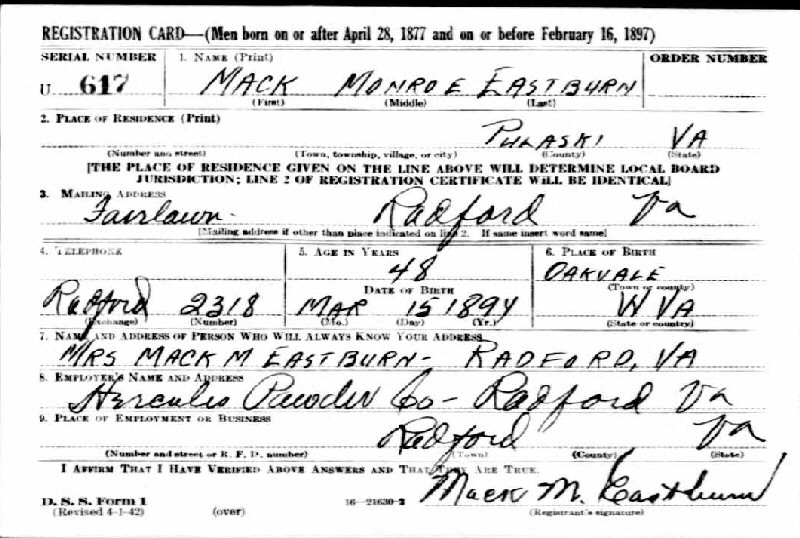 REGISTRATION CARD—(Men born on or after April 28, 1877 and on or before February 16, 1897)
SERIAL NUMBER 1. NAME (Print) ORDER NUMBER
U 617 MACK MONROE EASTBURN
(First) (Middle) (Last)
2. PLACE OF RESIDENCE (Print)
PULASKI VA
(Number and street) (Town, township, village, or city) (County) (State)
[THE PLACE OF RESIDENCE GIVEN ON THE LINE ABOVE WILL DETERMINE LOCAL BOARD
JURISDICTION; LINE 2 OF REGISTRATION CERTIFICATE WILL BE IDENTICAL]
3. MAILING ADDRESS
Fairlawn - Radford Va
[Mailing address if other than place indicated on line 2. If same insert word same]
4. TELEPHONE 5. AGE IN YEARS 6. PLACE OF BIRTH
48 OAKVALE
DATE OF BIRTH (Town or county)
Radford 2318 MAR 15 1894 W VA
(Exchange) (Number) (Mo.) (Day) (Yr.) (State or country)
7. NAME AND ADDRESS OF PERSON WHO WILL ALWAYS KNOW YOUR ADDRESS
MRS MACK M EASTBURN - RADFORD, VA
8. EMPLOYER'S NAME AND ADDRESS
Hercules Powder Co - Radford Va
9. PLACE OF EMPLOYMENT OR BUSINESS
Radford Va
(Number and street or R. F. D. number) (Town) (County) (State)
I AFFIRM THAT I HAVE VERIFIED ABOVE ANSWERS AND THAT THEY ARE TRUE.
D. S. S. Form 1 16—21630-2 Mack M. Eastburn
(Revised 4-1-42) (over) (Registrant's signature)